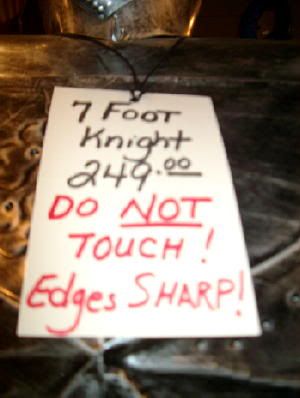 7 FOOT
Knight
249.00
DO NOT
TOUCH!
Edges SHARP!